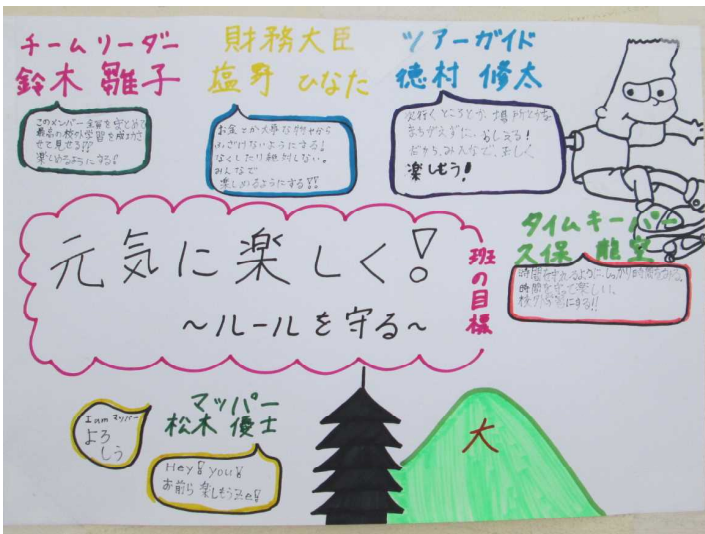 チームリーダー
鈴木 雛子
このメンバー全員をまとめて
最高の校外学習を成功さ
せて見せる!!
楽しめるようにする!
財務大臣
塩野 ひなた
お金とか大事な物だから
ふざけないようにする!
なくしたり絶対しない。
みんなで
楽しめるようにする!!
ツアーガイド
徳村 修太
次行くところとか、場所とかを
まちがえずに、おしえる!
だから、みんなで、楽しく
楽しもう!
タイムキーパー
久保
時間を守って楽しい、
校外学習にする!!
元気に楽しく!
~ルールを守る~
班の目標
マッパー
松木 優士
I am マッパー
よろ
しう
Hey! you!
お前ら 楽しもうZe!
大